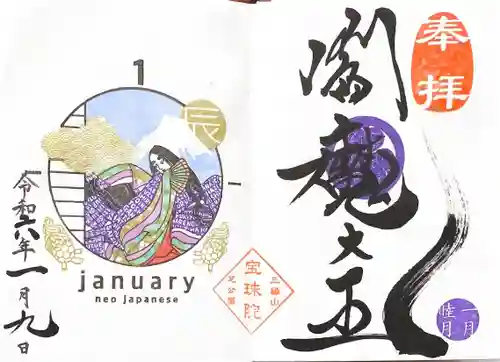 奉拝
閻魔大王
一月
睦月
1
辰
january
neo japanese
令和六年一月九日
三縁山
宝珠院
芝公園